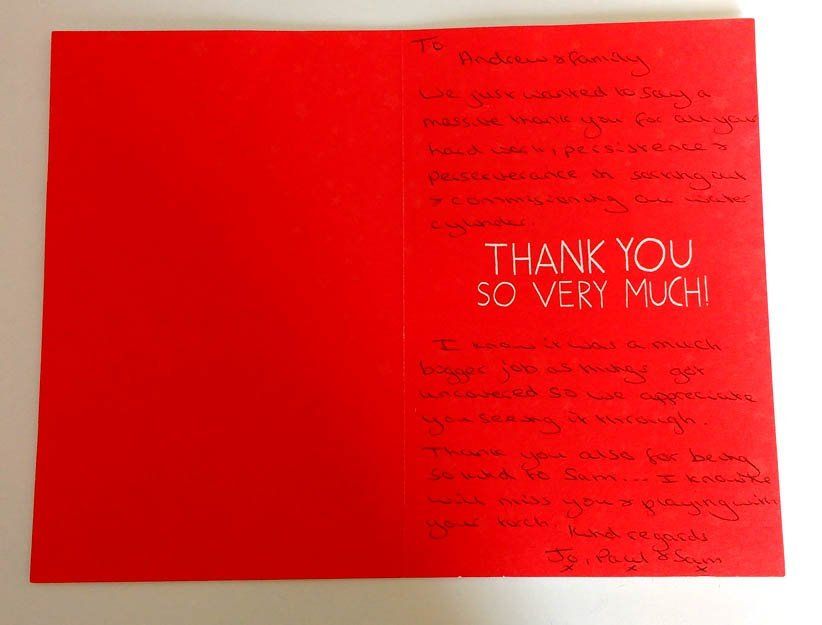 To
Andrew & family
We just wanted to say a
massive thank you for all your
hard work, persistence &
perserverance in sorting out
& commissioning our water
cylinder.
THANK YOU
SO VERY MUCH!
I know it was a much
bigger job as things got
uncovered so we appreciate
you seeing it through.
Thank you also for being
so kind to Sam... I know he
will miss you & playing with
your torch. Kind regards
Jo, Paul & Sam
x x x